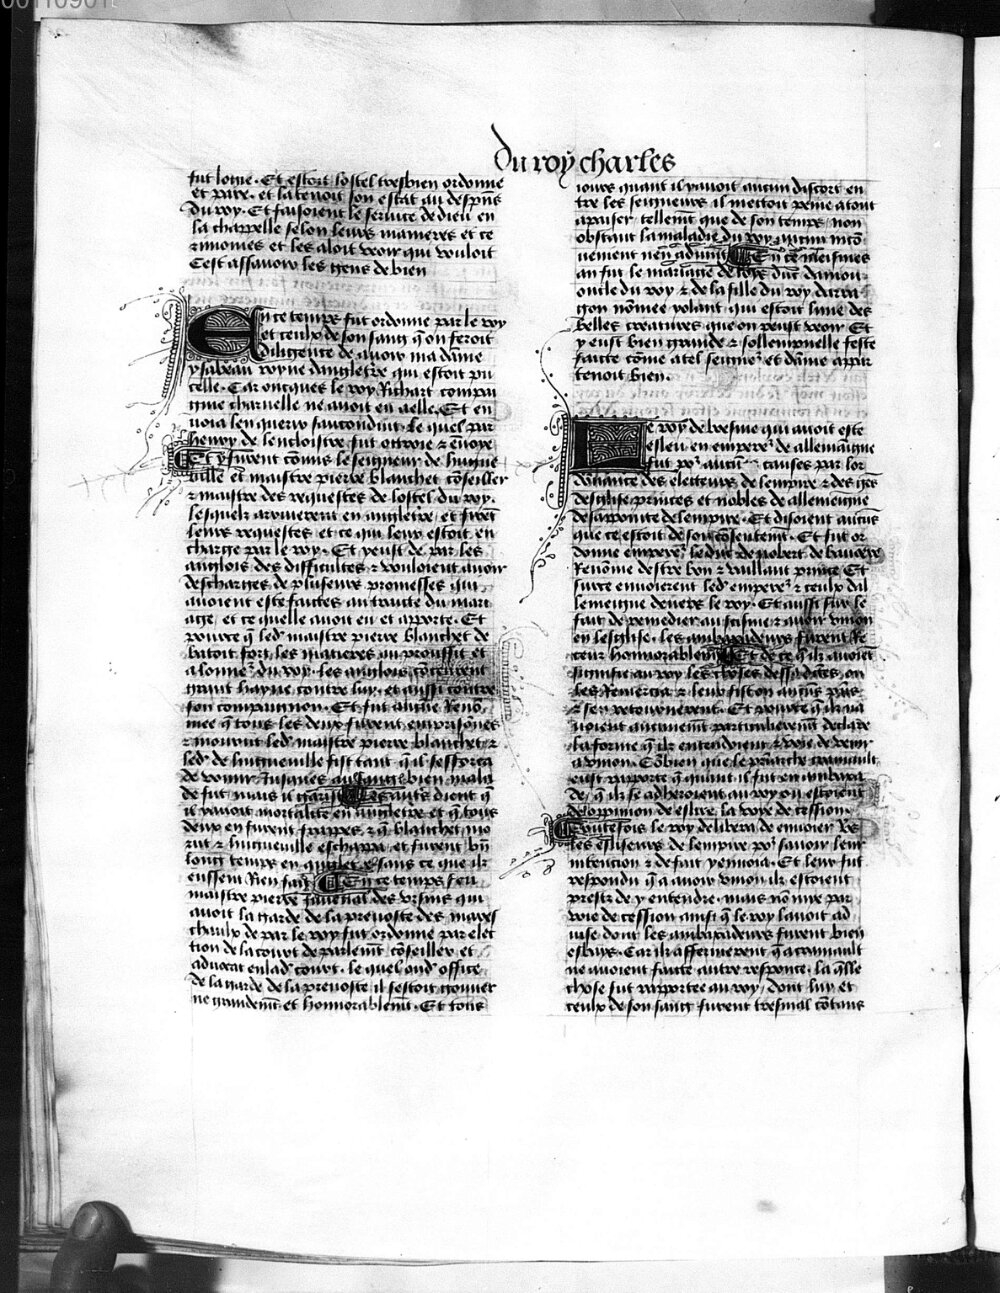 du roy charles
fut logie. Et estoit lostel tresbien ordonne
et pare. et la tenoit son estat au despens
du roy. Et faisoient le service de dieu en
la chappelle selon leurs manieres et ce
rimonies et les aloit veoir qui vouloit
Cest assavoir les gens de bien
En ce temps fut ordonne par le roy
et ceulx de son sang q̄ on feroit
diligence de avoir madāme
ysabeau royne dangletēre qui estoit pu
celle. Car oncques le roy Richart compai
gnie charnelle ne avoit eu a elle. Et en
voia len querir saufconduit. le quel par
henry de lenclōistre fut ottroie ⁊ ēnvoye
Et y furent cōmis le seigneur de hugue
ville et maistre pierre blanchet cōseiller
⁊ maistre des requestes de lostel du roy.
lesquelz arriverent en angletēre et firēt
leurs requestes et ce qui leur estoit en
charge par le roy. Et y eust de par les
anglois des difficultes ⁊ vouloient avoir
descharges de pluseurs promesses qui
avoient este faictes au traite du mari
age, et ce quelle avoit eu et apporte. Et
pource q̄ led' maistre pierre blanchet de
batoit fort les matieres au prouffit et
a lonneʳ du roy. les anglois cōceurent
grant hayne contre luy. et aussi contre
son compaignon. Et fut aucūe Renō
mee q̄ tous les deux furent emprisōnes
⁊ mourut led' maistre pierre blanchet ⁊
led' de hugueville fist tant q̄ il sefforca
de venir Jusques a bien mala
de fut mais il garist Les autrs dient q̄
il y avoit mortalite en angletēre et q̄ tous
deux en furent frappes. ⁊ q̄ blanchet mo
rut ⁊ hugueville eschappa. et furent bn̄
long temps en anglet̄e sans ce que ilz
eussent Rien fait En ce temps feu
maistre pierre Juvenal des ursins qui
avoit la garde de la prevoste des mars
chāulx de par le roy fut ordonne par elec
tion de la court de parlemt̄ cōseiller et
advocat en lad' court. le quel oud' office
de la garde de la prevoste il sestoit gouver
ne grandemt̄ et honnorablemt̄. Et tous
iours quant il y avoit aucun discort en
tre les seigneurs il mettoit peine a tout
apaiser tellemt̄ que de son temps non
obstant la maladie du roy aucun incō
venient nen advint En ce mesmes
an fut le mariage de loys duc daniou
oncle du roy ⁊ de la fille du roy darra
gon nōmee yolant qui estoit lune des
belles creatures que on peust veoir Et
y eust bien grande ⁊ sollempnelle feste
faicte cōme a tel seigneʳ et dāme appar
tenoit bien.
Le roy de boesme qui avoit este
esleu en empereʳ de allemaigne
fut poʳ aucūes causes par lor
dōnance des electeurs de lempire ⁊ des gēs
desglise princes et nobles de allemeigne
desappointe de lempire. Et disoient aucūs
que ce estoit de son cōsentemt̄. Et fut or
donne empereʳ le duc de Robert de baviere
Renōme destre bon ⁊ vaillant prince Et
furēt envoierent led' empereʳ ⁊ ceulx dal
lemeigne devers le roy. Et aussi sur le
fait de remedier au scisme ⁊ avoir union
en lesglise. les ambaxadeurs furent Re
ceuz honnorablemt̄ Et de ce q̄ ilz avoiēt
signifie au roy les choses dessusdites on
les Remercia ⁊ leur fist on aucūs p̄ns
⁊ sen retournerent. Et pource q̄ ilz na
voient aucunemt̄ particulieremt̄ declare
la forme q̄ ilz entendoient ⁊ voie de venir
a union. Cōbien que le p̄riarche
eust rapporte q̄ quant il fut en ambaxa
de, q̄ ilz se adheroient au roy ou estoient
de loppinion de eslire la voye de cession
Toutefois le roy delibera de envoier v̄s
les esliseurs de lempire poʳ savoir leur
intencion ⁊ de fait y envoia. Et leur fut
respondu q̄ a avoir union ilz estoient
prestz de y entendre. mais nō mye par
voie de cession ainsi q̄ le roy lavoit ad
vise dont les ambaxadeurs furent bien
esbays. Car ilz affermerent q̄
ne avoient faicte autre response. la q̄lle
chose fut rapportee au roy. dont luy et
ceulx de son sang furent tresmal cōtens